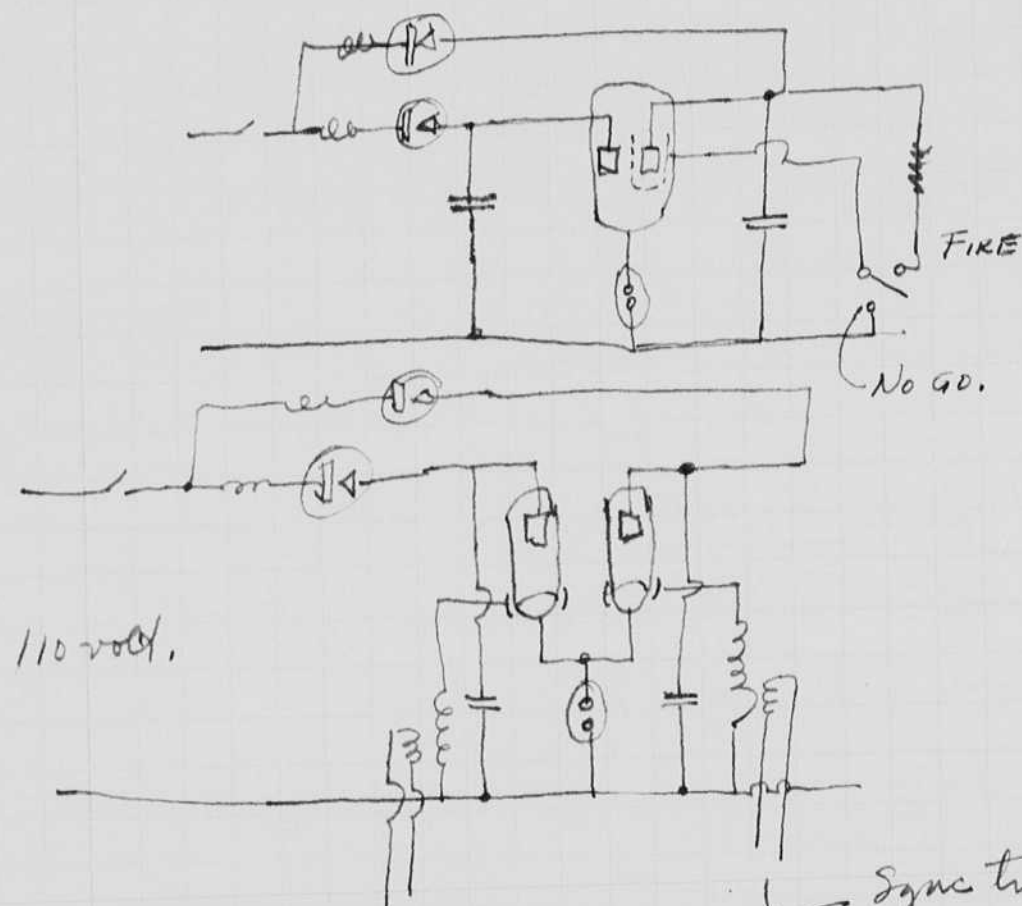 FIRE
No GO.
110-volt.
Sync